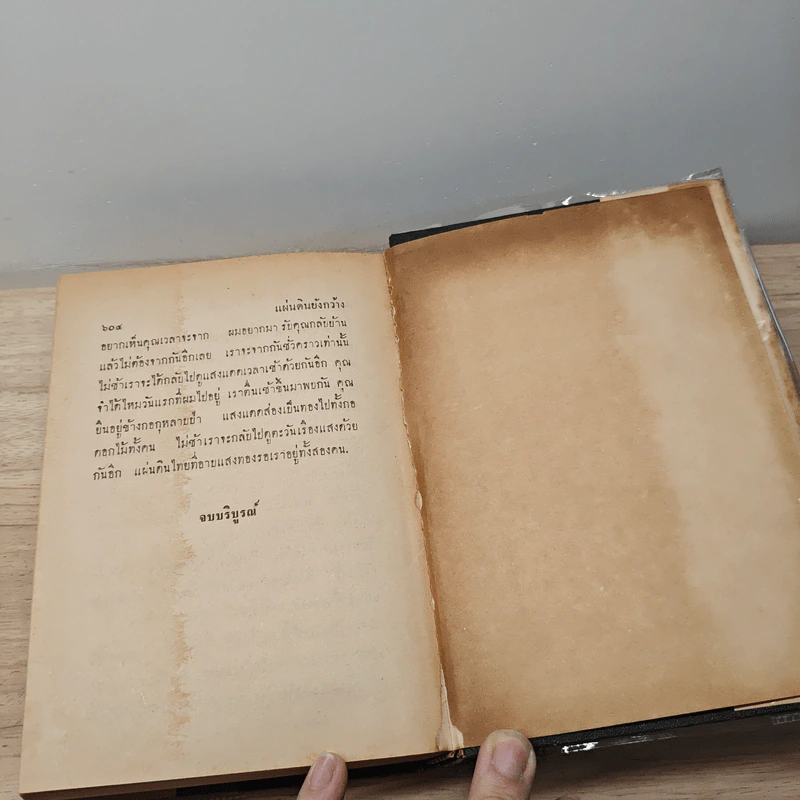 แผ่นดินยังกว้าง
๖๐๔
อยากเห็นคุณเวลาจะจาก ผมอยากมารับคุณกลับบ้าน
แล้วไม่ต้องจากกันอีกเลย เราจะจากกันชั่วคราวเท่านั้น
ไม่ช้าเราจะได้กลับไปดูแสงแดดเวลาเช้าด้วยกันอีก คุณ
จำได้ไหมวันแรกที่ผมไปอยู่ เราตื่นเช้าขึ้นมาพบกัน คุณ
ยืนอยู่ข้างกอกุหลาบป่า แสงแดดส่องเป็นทองไปทั้งกอ
ดอกไม้ทั้งคน ไม่ช้าเราจะกลับไปดูตะวันเรืองแสงด้วย
กันอีก แผ่นดินไทยที่อาบแสงทองรอเราอยู่ทั้งสองคน.
จบบริบูรณ์